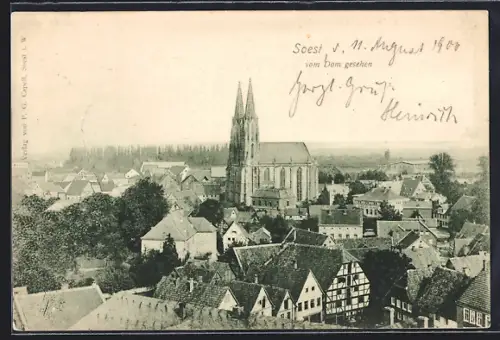 Soest d. 11. August 1900
vom Dom gesehen
Herzl. Gruß
Heinrich
Verlag von P. G. Capell, Soest i. W.